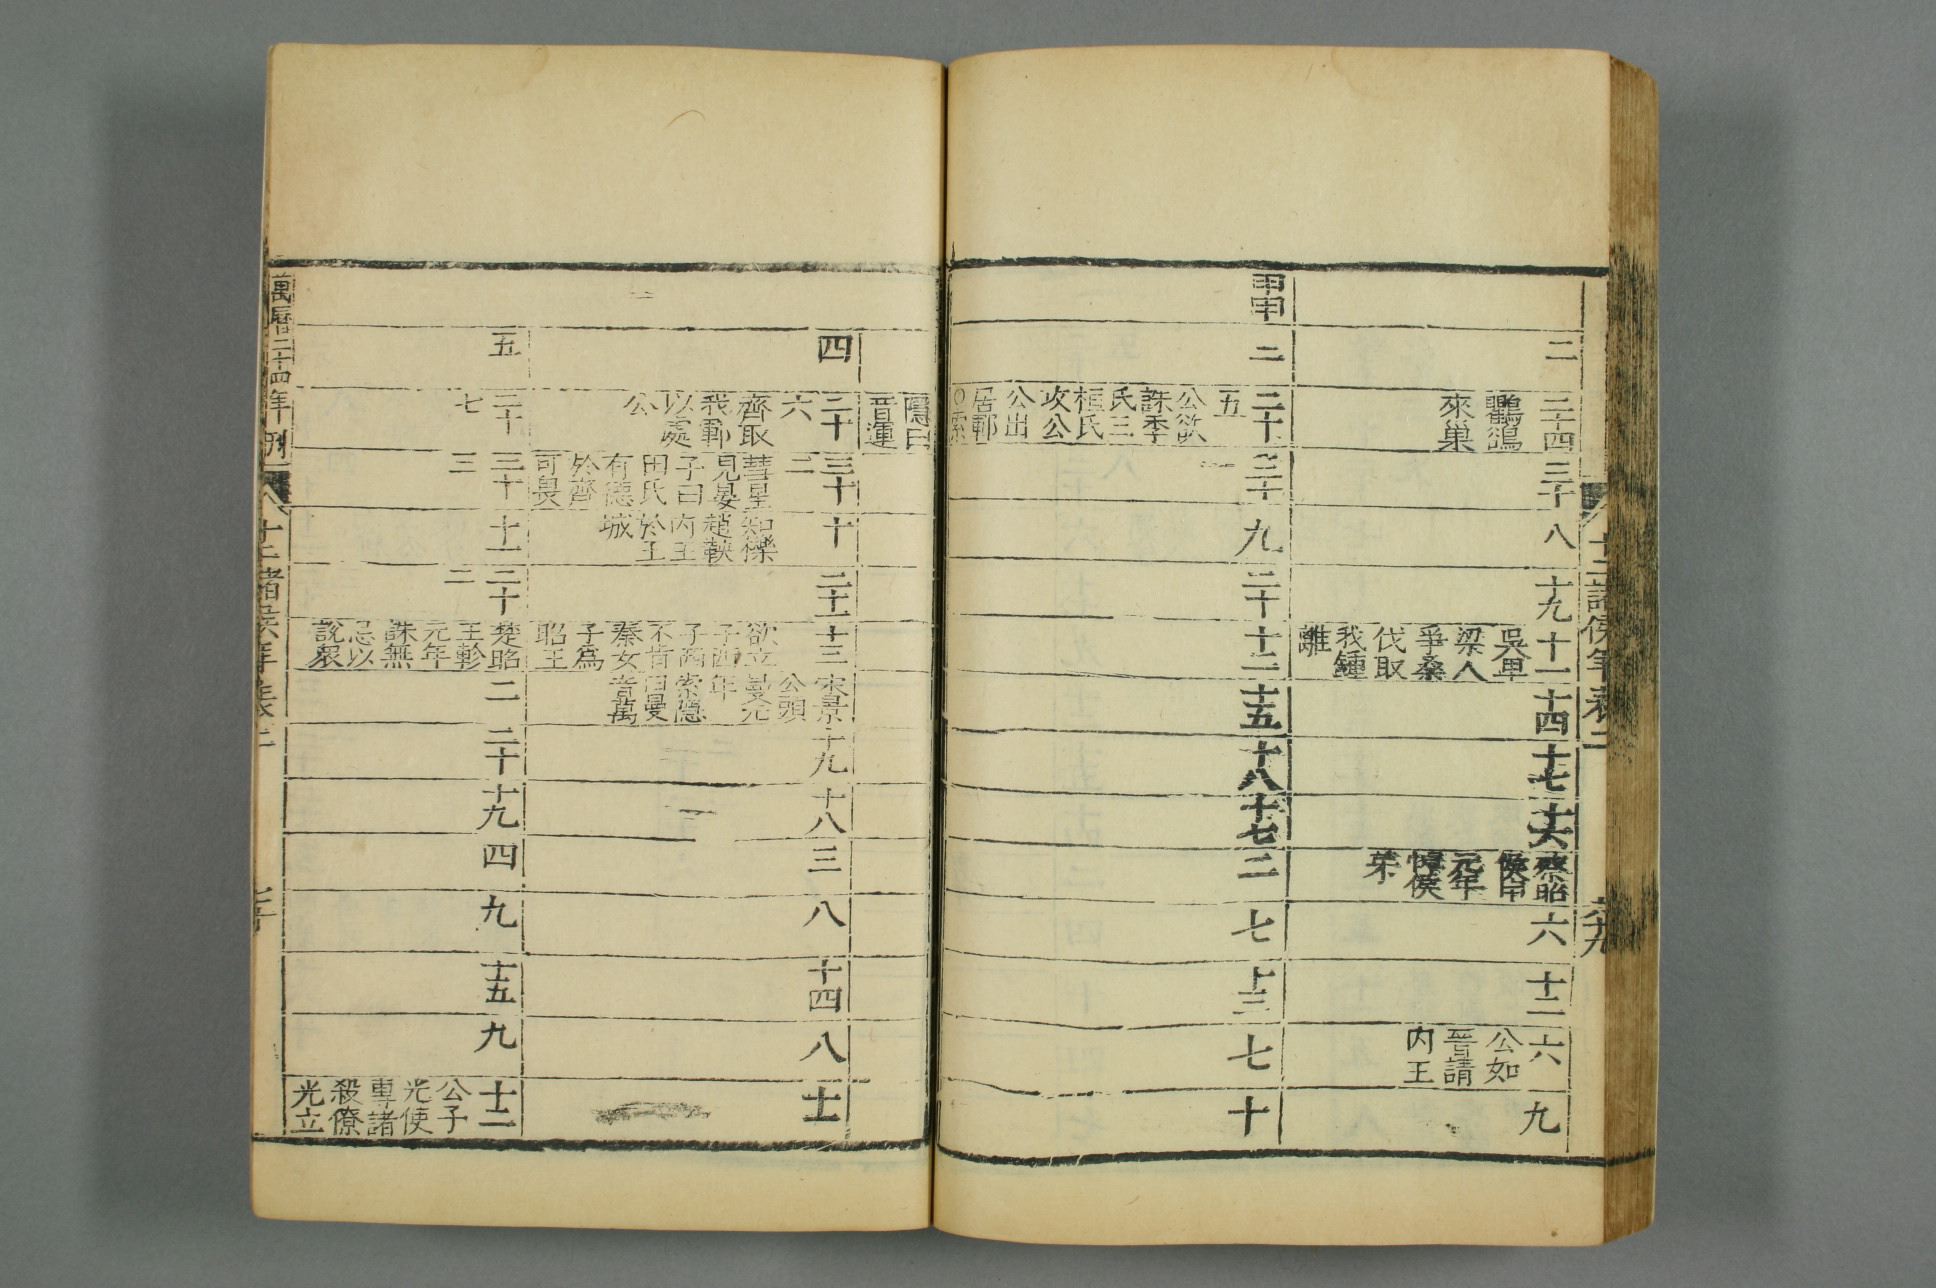 二
二十四
鸜鵒
來巢
三十
八
十九
十一
吳卑
梁人
爭桑
伐取
我鍾
離
十四
十七
十六
蔡昭
侯申
元年
悼侯
弟
六
十二
六
公如
晉請
内王
九
甲申
二
二十
五
公欲
誅季
氏三
桓氏
攻公
公出
居鄆
○索
三十
九
二十
十二
十五
十八
十七
二
七
十三
七
十
隱曰
音運
四
二十
六
齊取
我鄆
以處
公
三十
二
彗星
見晏
子曰
田氏
有德
於齊
可畏
十
知櫟
趙鞅
内王
於王
城
二十一
十三
欲立
子西
子西
不肯
秦女
子爲
昭王
宋景
公頭
曼元
年
索隱
曰曼
音萬
十九
十八
三
八
十四
八
十一
五
二十
七
三十
三
十一
二十
二
楚昭
王軫
元年
誅無
忌以
說衆
二
二十
十九
四
九
十五
九
十二
公子
光使
專諸
殺僚
光立
萬曆二十四年刊
十二諸侯年表二